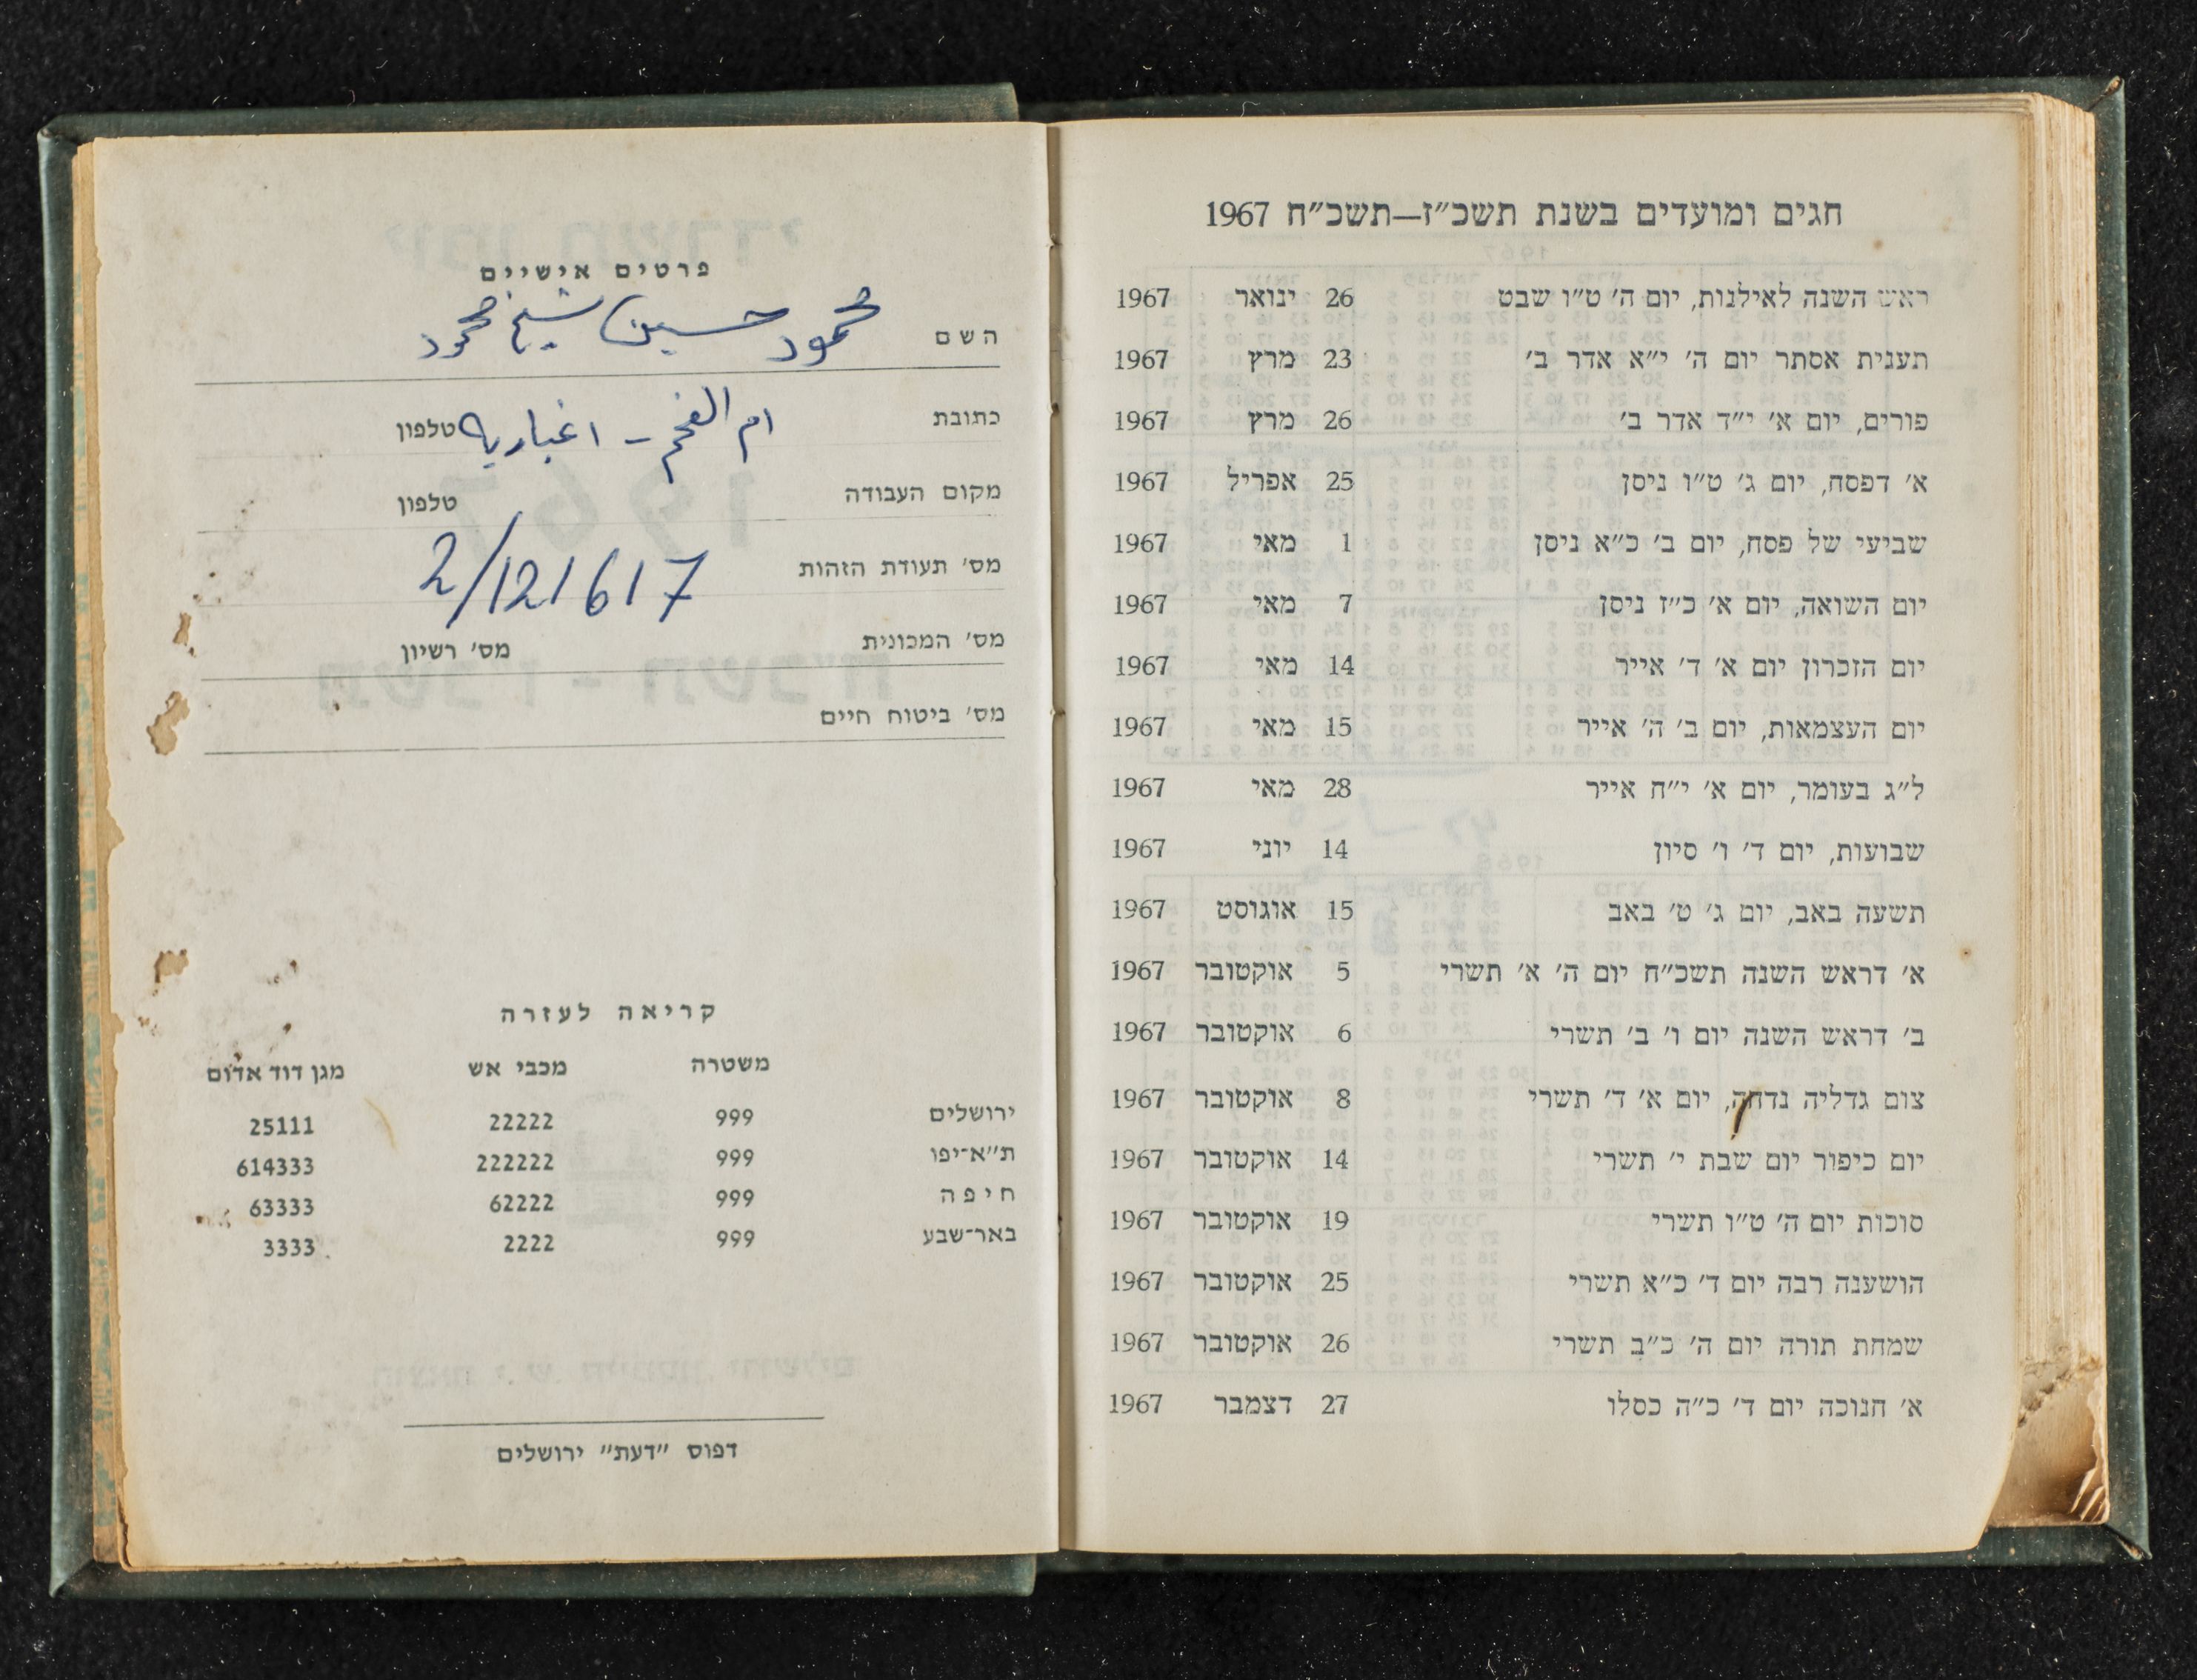 חגים ומועדים בשנת תשכ״ז—תשכ״ח 1967
ראש השנה לאילנות, יום ה׳ ט״ו שבט 26 ינואר 1967
תענית אסתר יום ה׳ י״א אדר ב׳ 23 מרץ 1967
פורים, יום א׳ י״ד אדר ב׳ 26 מרץ 1967
א׳ דפסח, יום ג׳ ט״ו ניסן 25 אפריל 1967
שביעי של פסח, יום ב׳ כ״א ניסן 1 מאי 1967
יום השואה, יום א׳ כ״ז ניסן 7 מאי 1967
יום הזכרון יום א׳ ד׳ אייר 14 מאי 1967
יום העצמאות, יום ב׳ ה׳ אייר 15 מאי 1967
ל״ג בעומר, יום א׳ י״ח אייר 28 מאי 1967
שבועות, יום ד׳ ו׳ סיון 14 יוני 1967
תשעה באב, יום ג׳ ט׳ באב 15 אוגוסט 1967
א׳ דראש השנה תשכ״ח יום ה׳ א׳ תשרי 5 אוקטובר 1967
ב׳ דראש השנה יום ו׳ ב׳ תשרי 6 אוקטובר 1967
צום גדליה נדחה, יום א׳ ד׳ תשרי 8 אוקטובר 1967
יום כיפור יום שבת י׳ תשרי 14 אוקטובר 1967
סוכות יום ה׳ ט״ו תשרי 19 אוקטובר 1967
הושענה רבה יום ד׳ כ״א תשרי 25 אוקטובר 1967
שמחת תורה יום ה׳ כ״ב תשרי 26 אוקטובר 1967
א׳ חנוכה יום ד׳ כ״ה כסלו 27 דצמבר 1967
פרטים אישיים
השם محمود حسين شيخ محمود
כתובת ام الفحم - اغباريه טלפון
מקום העבודה טלפון
מס׳ תעודת הזהות 2/121617
מס׳ המכונית מס׳ רשיון
מס׳ ביטוח חיים
קריאה לעזרה
משטרה מכבי אש מגן דוד אדום
ירושלים 999 22222 25111
ת״א־יפו 999 222222 614333
חיפה 999 62222 63333
באר־שבע 999 2222 3333
דפוס ״דעת״ ירושלים